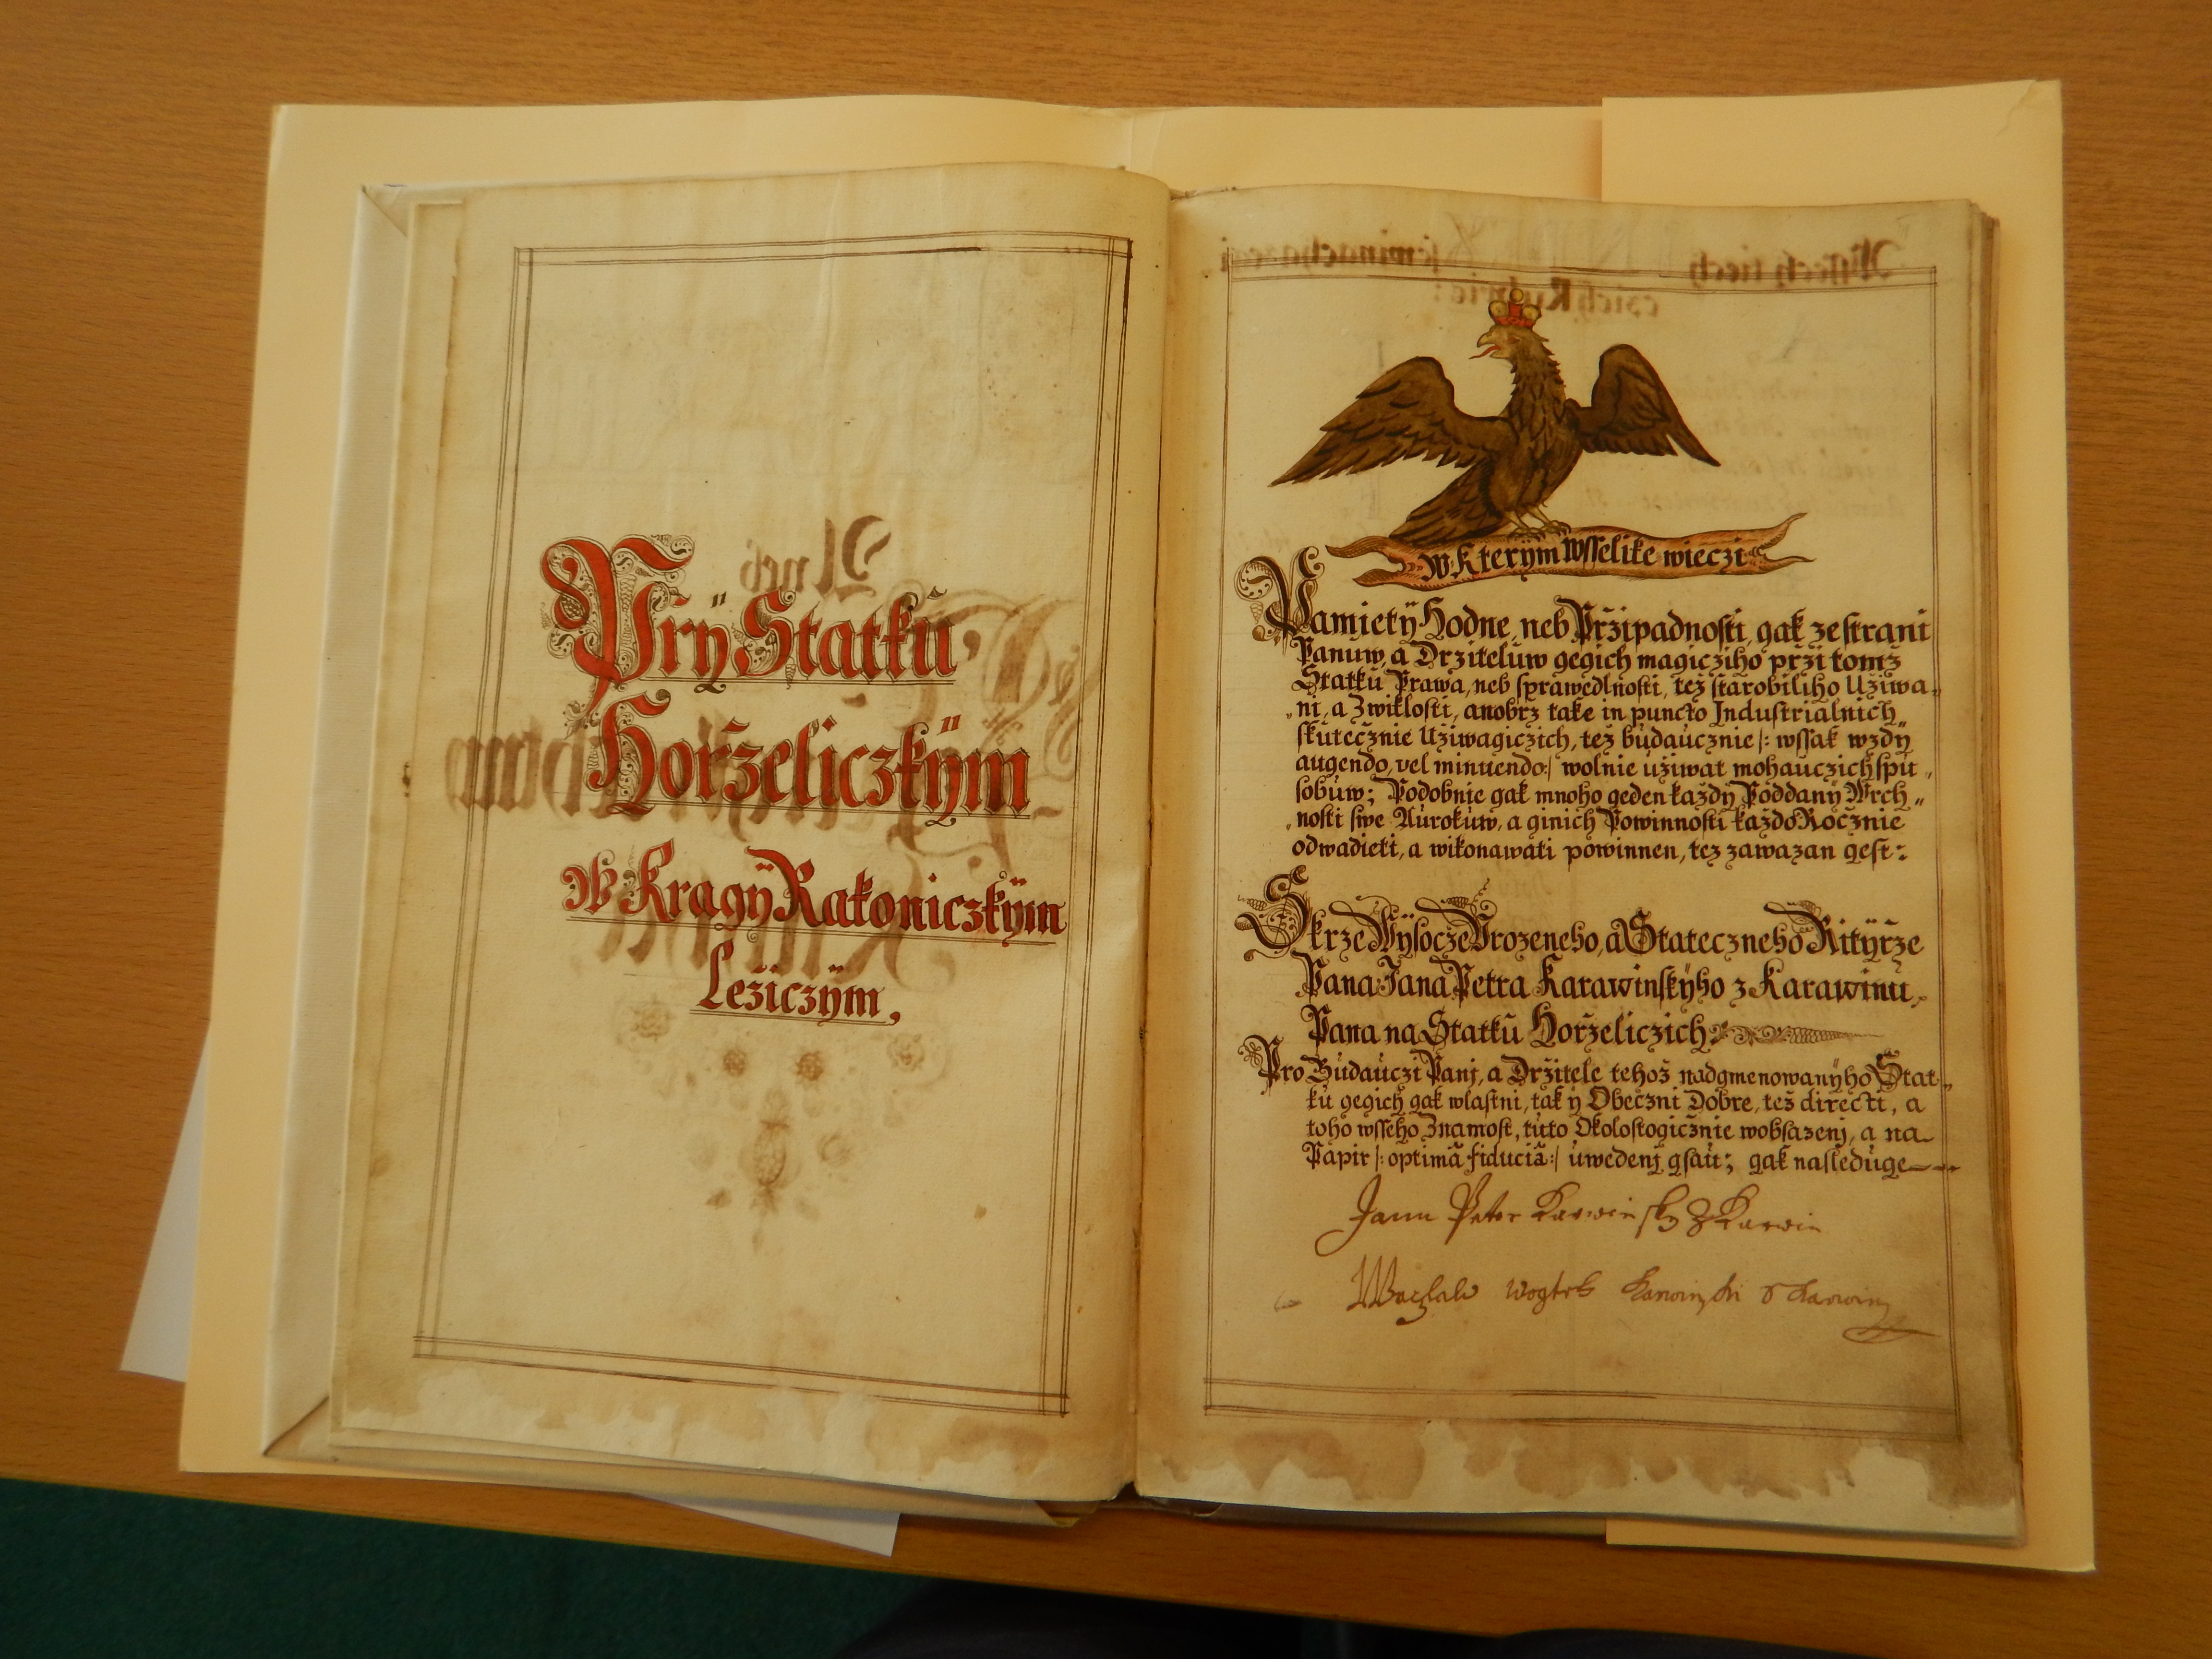 Přÿ Statků
Hořzeliczkÿm
W Kragÿ Rakoniczkÿm
Ležiczÿm,
W Kterÿm wsselike wieczi
Pamietÿ Hodne, neb Pržipadnosti, gak ze strani
Panuw, a Držiteluw gegich magicziho prži tomž
Statků Prawa, neb sprawedlnosti, též starobiliho Užiwa„
„ni, a Zwiklosti, anobrž take in puncto Industrialnich„
skutecžnie Užiwagiczich, též búdaúcznie /: wssak wzdy
augendo, vel minuendo :/ wolnie užiwat mohauczich spu„
sobúw; Podobnie gak mnoho geden každý Poddaný Wrch„
„nosti swe Aúrokúw, a ginich Powinnosti každo Rocžnie
odwadieti, a wikonawati powinnen, též zawazan gest:
Skrze Wÿsocze Urozeneho, a Statecžneho Ritÿrže
Pana Jana Petra Karawinskÿho z Karawinů,
Pana na Statků Horželiczich
Pro Búdaúczi Panj, a Držitele tehož nadgmenowanýho Stat„
kú gegich gak wlastni, tak ÿ Obecžni Dobre, též directi, a
toho wsseho Znamost, túto Okolostogicžnie wobsazenj, a na
Papir /: optimâ fiduciâ :/ úwedenj gsaú; gak nasledúge
Jann Peter Karwinsky Z Karwin
Waczlaw Wogteh Karwinski Karwin